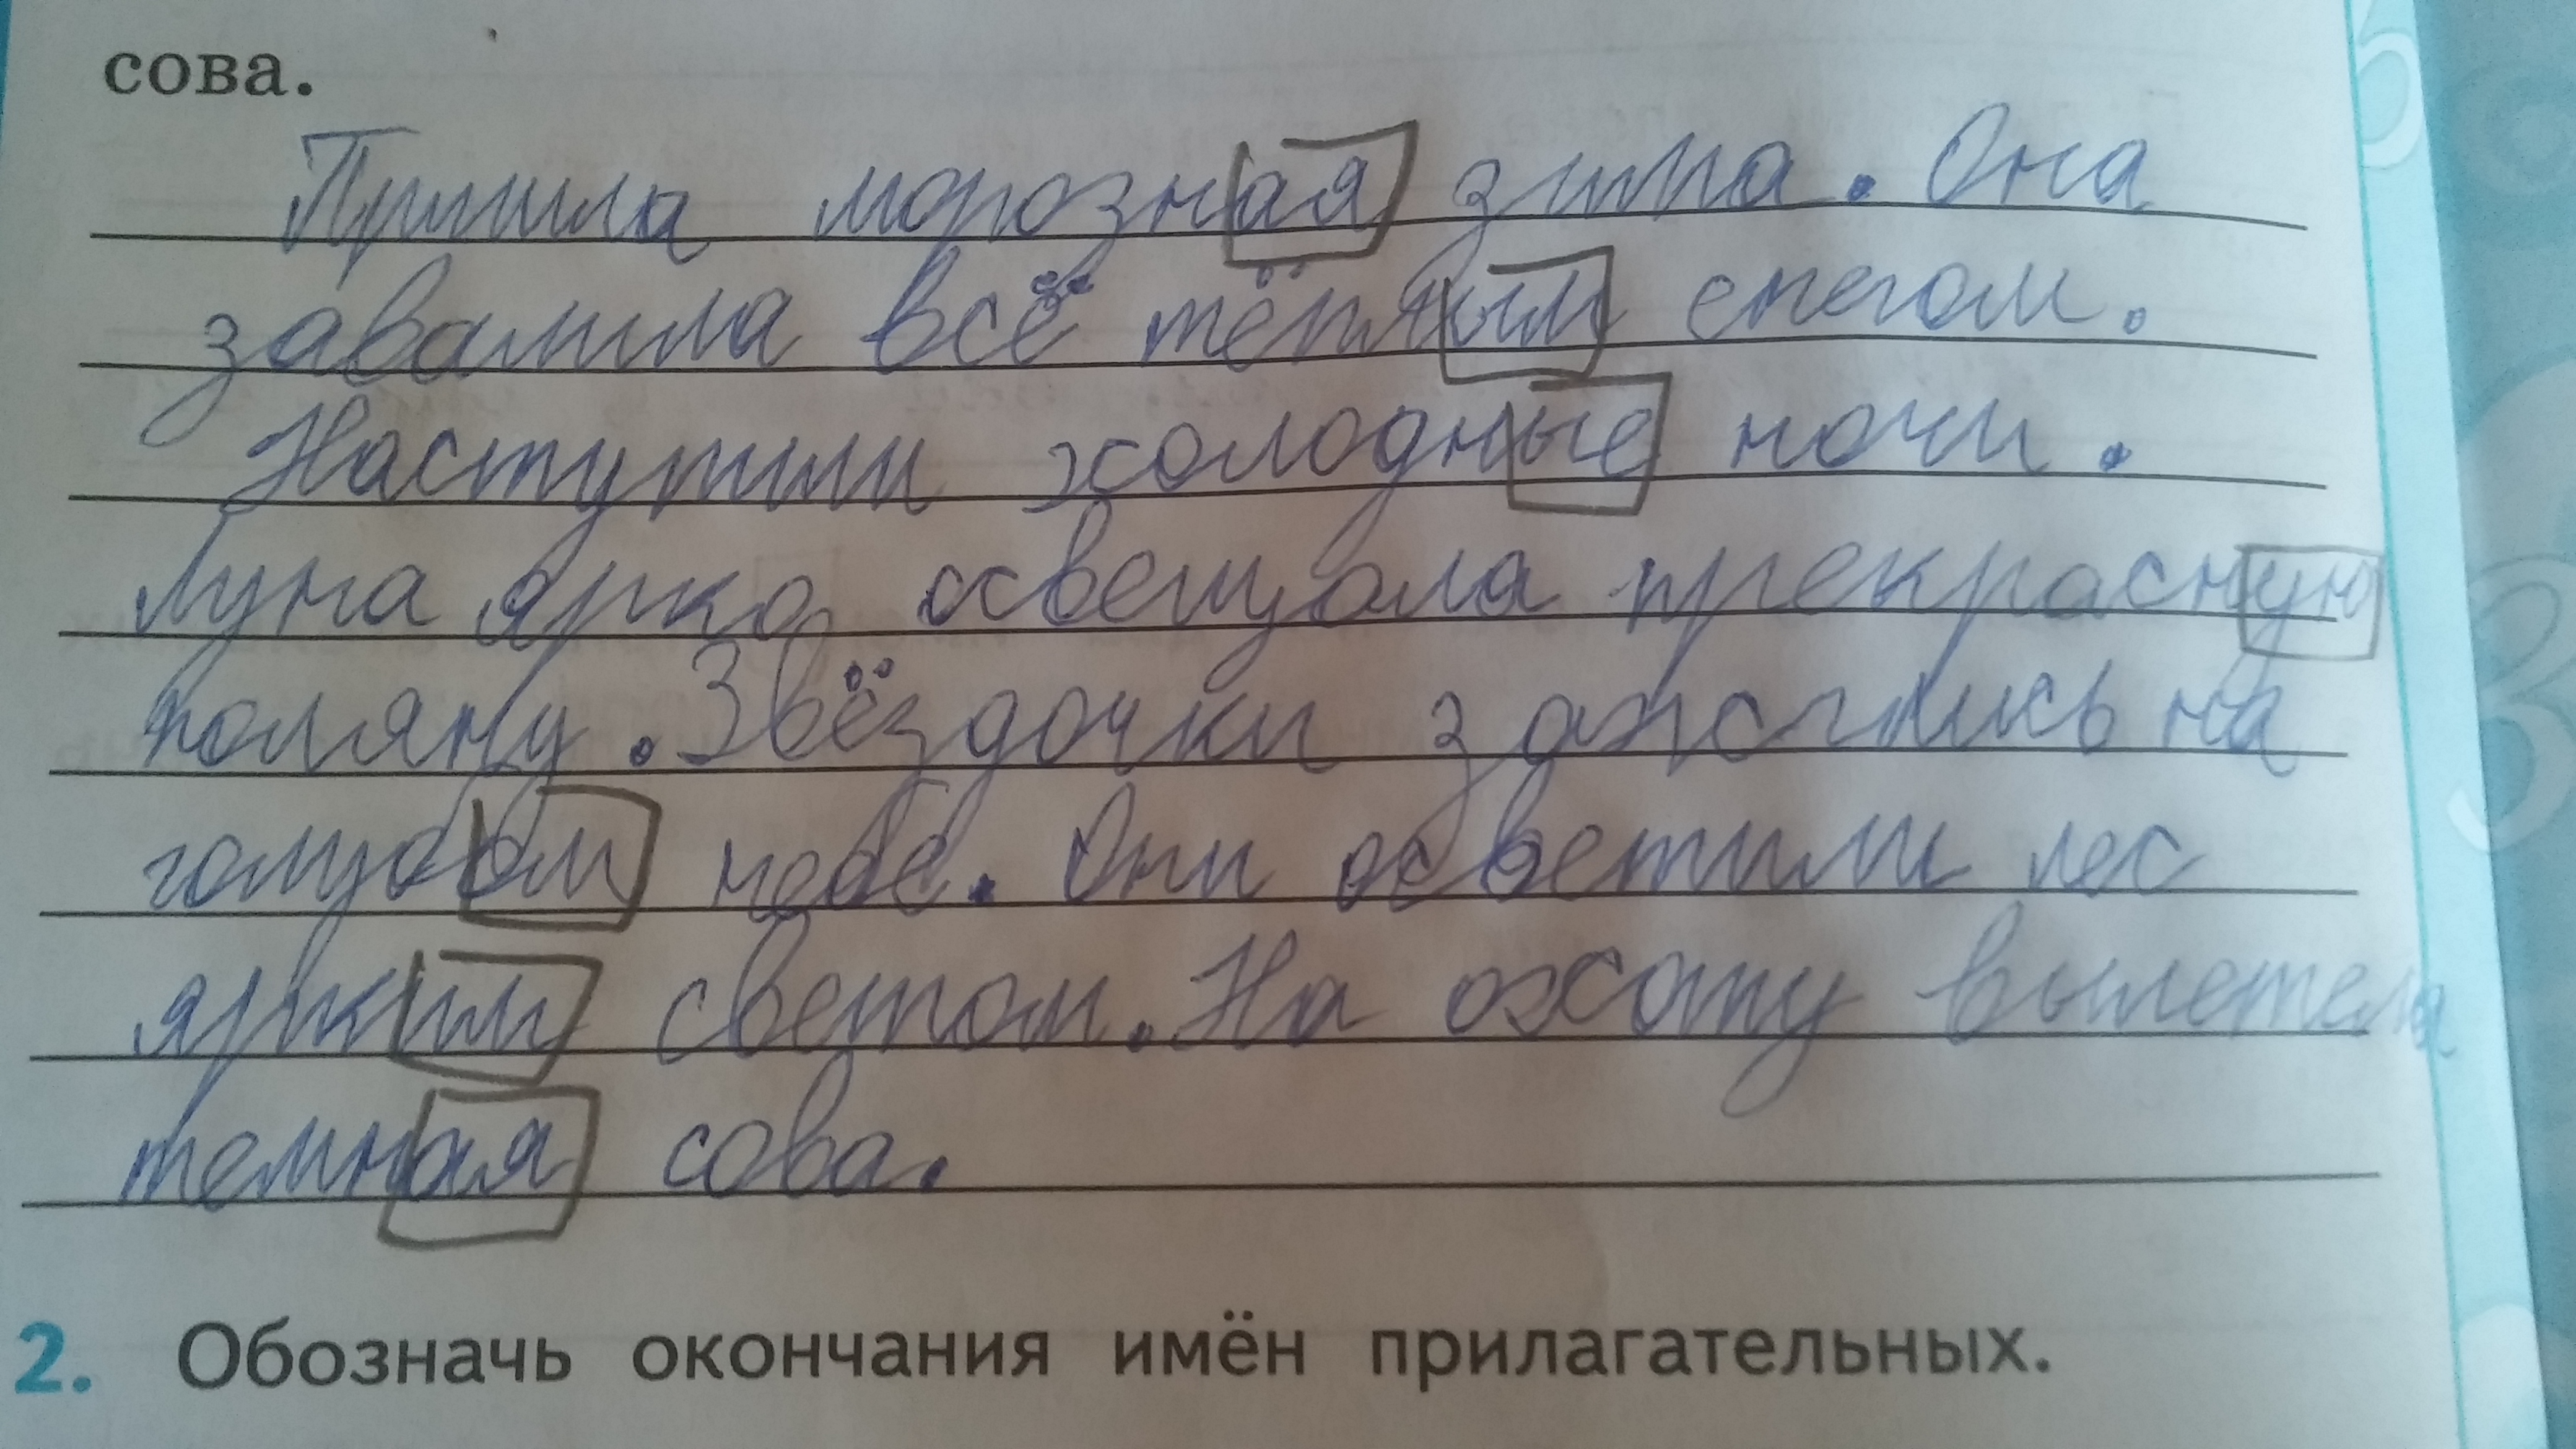 сова.
Пришла морозная зима. Она
завалила всё тёплым снегом.
Наступили холодные ночи.
Луна ярко освещала прекрасную
поляну. Звёздочки зажглись на
голубом небе. Они осветили лес
ярким светом. На охоту вылетела
темная сова.
2. Обозначь окончания имён прилагательных.